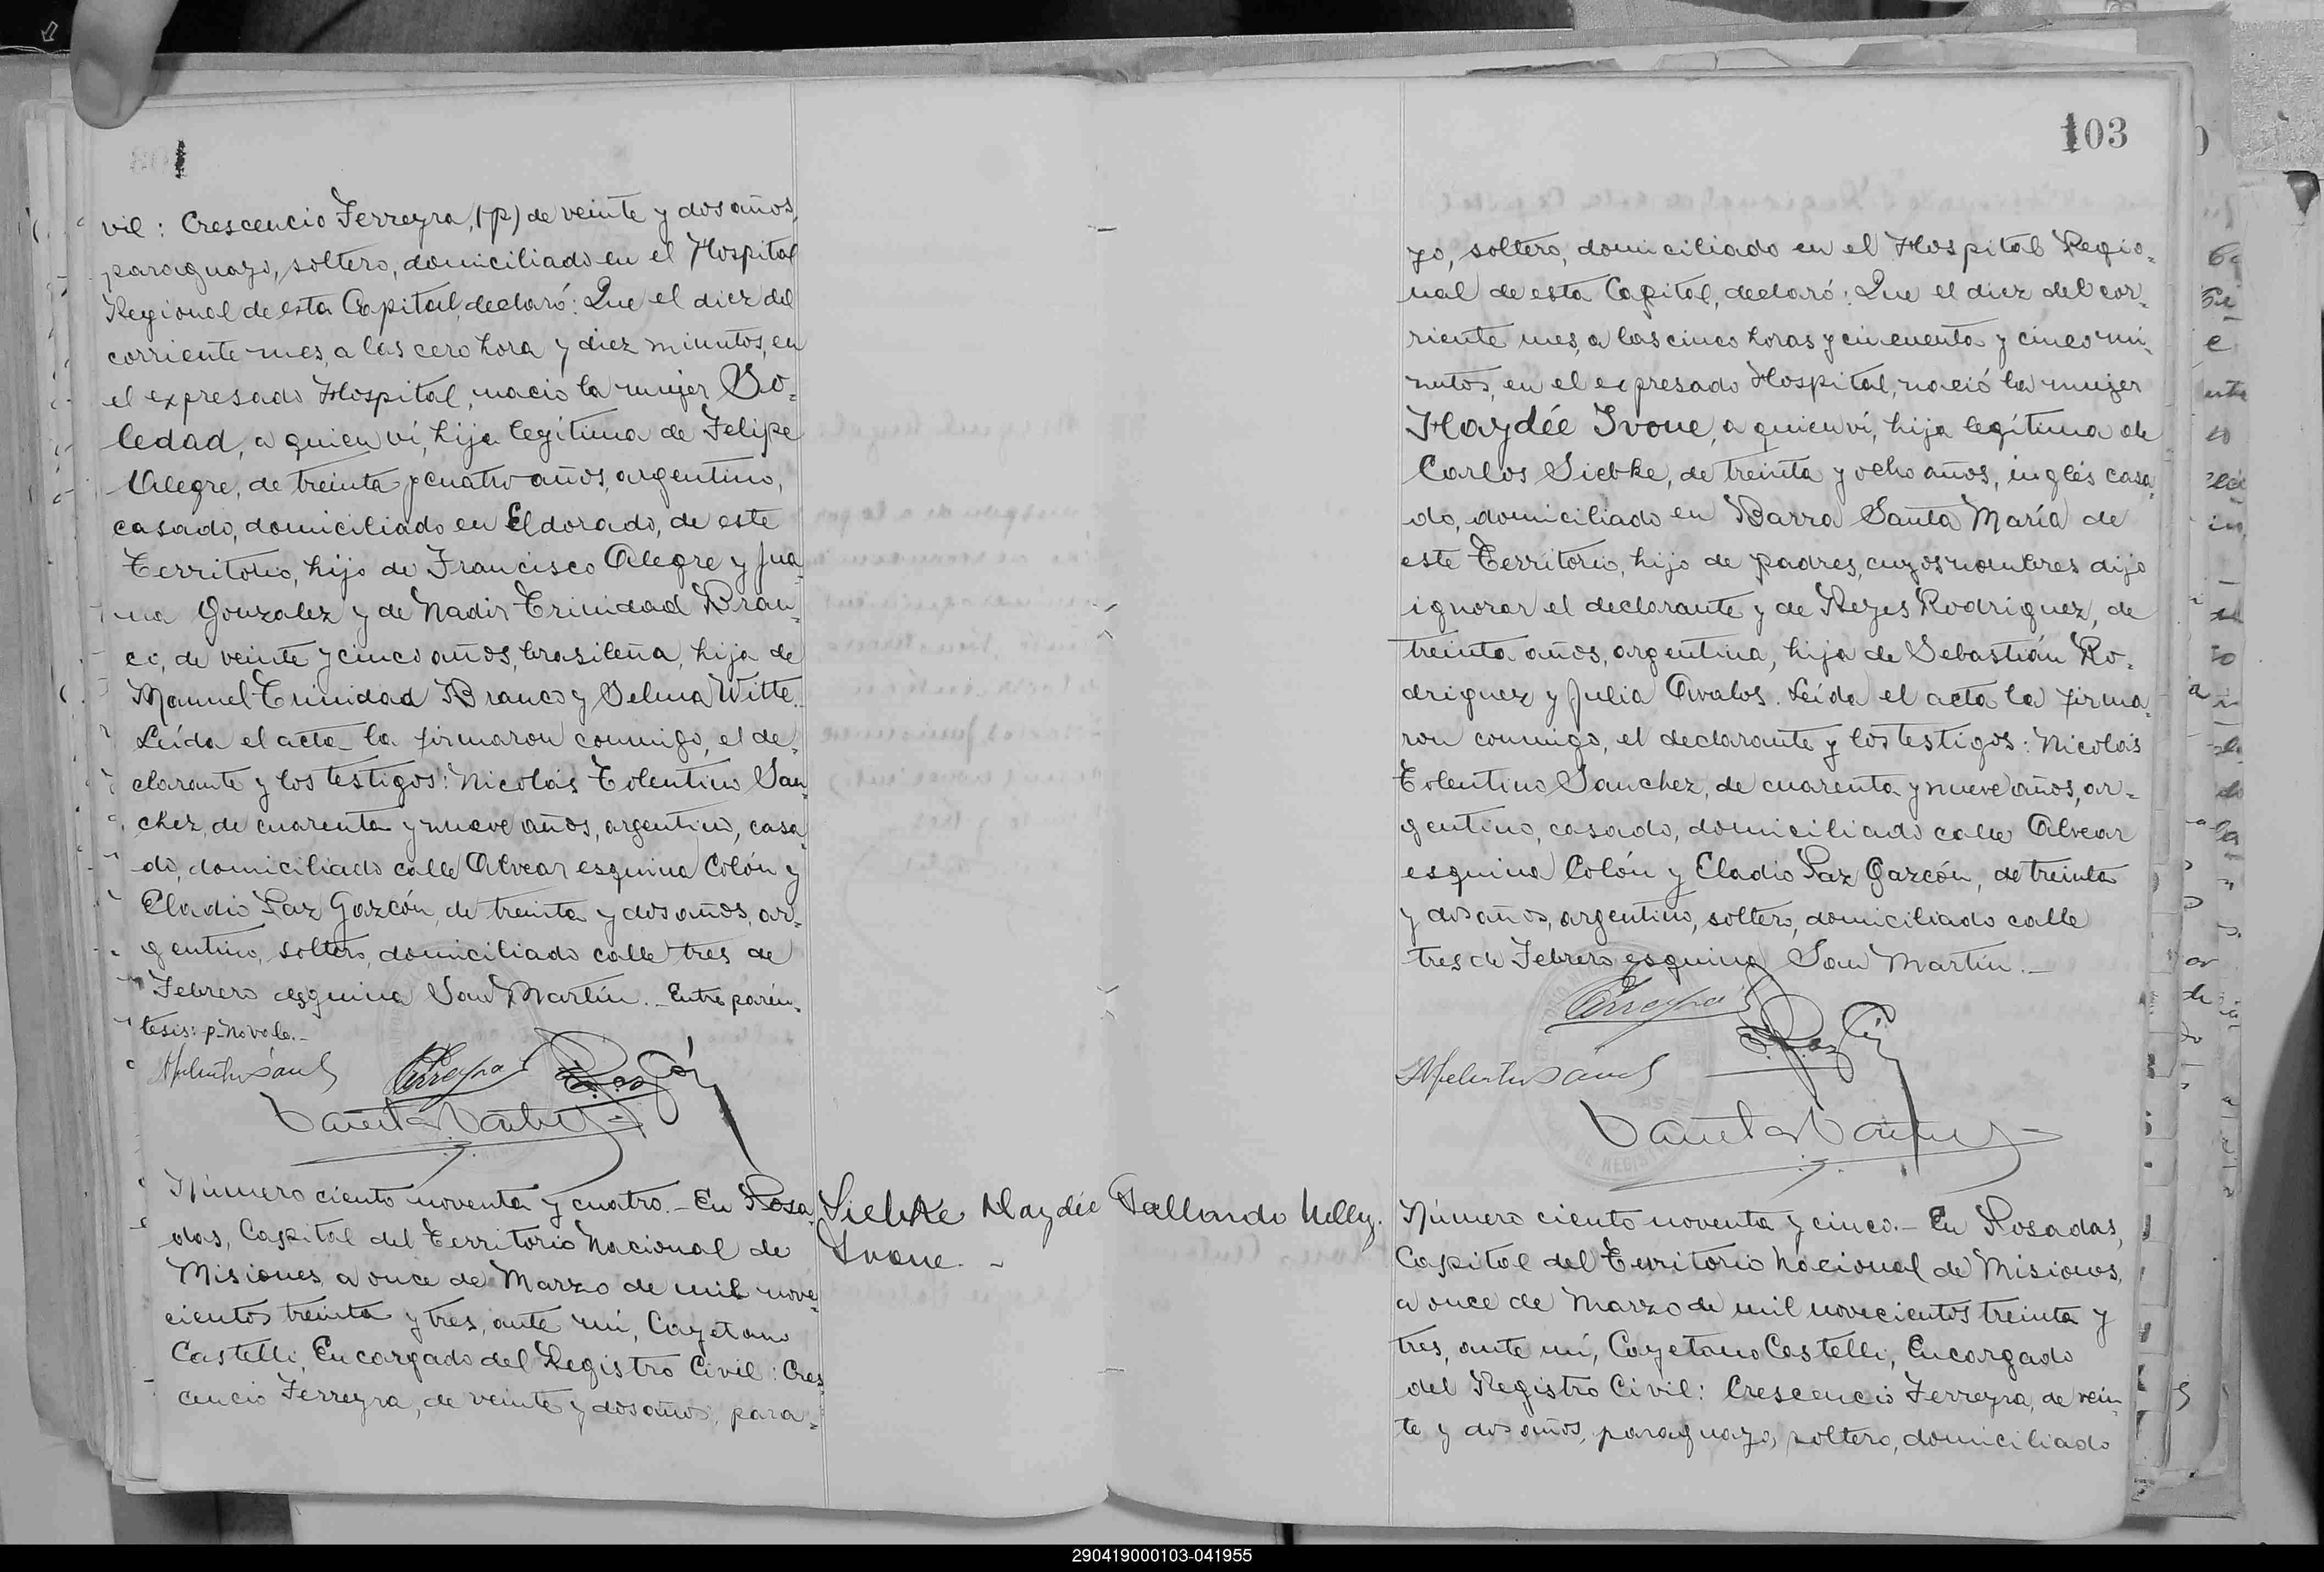 vil: Crescencio Ferreyra, (p) de veinte y dos años,
paraguayo, soltero, domiciliado en el Hospital
Regional de esta Capital, declaró: Que el diez del
corriente mes, a las cero hora y diez minutos, en
el expresado Hospital, nació la mujer So-
ledad, a quien ví, hija legítima de Felipe
Alegre, de treinta y cuatro años, argentino,
casado, domiciliado en Eldorado, de este
Territorio, hijo de Francisco Alegre y Jua-
na Gonzalez y de Nadir Trinidad Bran-
co, de veinte y cinco años, brasileña, hija de
Manuel Trinidad Branco y Selma Witte.
Leída el acta la firmaron conmigo, el de-
clarante y los testigos: Nicolás Tolentino San-
chez, de cuarenta y nueve años, argentino, casa-
do, domiciliado calle Alvear esquina Colón y
Eladio Paz Gazcón, de treinta y dos años, ar-
gentino, soltero, domiciliado calle tres de
Febrero esquina San Martín.- Entre parén-
tesis: p-No vale.-
Número ciento noventa y cuatro.- En Posa-
das, Capital del Territorio Nacional de
Misiones, a once de Marzo de mil nove-
cientos treinta y tres, ante mí, Cayetano
Castelli, Encargado del Registro Civil: Cres-
cencio Ferreyra, de veinte y dos años, para-
Siebke Haydée
Ivone.-
103
yo, soltero, domiciliado en el Hospital Regio-
nal de esta Capital, declaró: Que el diez del cor-
riente mes, a las cinco horas y cincuenta y cinco mi-
nutos, en el expresado Hospital, nació la mujer
Haydée Ivone, a quien ví, hija legítima de
Carlos Siebke, de treinta y ocho años, inglés casa-
do, domiciliado en Barra Santa María de
este Territorio, hijo de padres, cuyos nombres dijo
ignorar el declarante y de Reyes Rodriguez, de
treinta años, argentina, hija de Sebastián Ro-
driguez y Julia Avalos. Leída el acta la firma-
ron conmigo, el declarante y los testigos: Nicolás
Tolentino Sanchez, de cuarenta y nueve años, ar-
gentino, casado, domiciliado calle Alvear
esquina Colón y Eladio Paz Gazcón, de treinta
y dos años, argentino, soltero, domiciliado calle
tres de Febrero esquina San Martín.-
Nelly.
Número ciento noventa y cinco.- En Posadas,
Capital del Territorio Nacional de Misiones,
a once de Marzo de mil novecientos treinta y
tres, ante mí, Cayetano Castelli, Encargado
del Registro Civil: Crescencio Ferreyra, de vein-
te y dos años, paraguayo, soltero, domiciliado
290419000103-041955